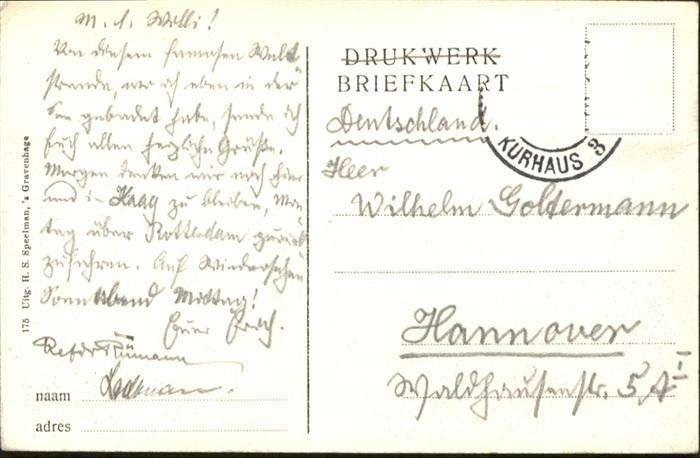 M. l. Willi!
Von diesem famosen Welt
strande, wo ich eben in der
See gebadet habe, sende ich
Euch allen herzliche Grüße.
Morgen denken wir noch hier
und in Haag zu bleiben, Mon
tag über Rotterdam zurück
zufahren. Auf Wiedersehen
Sonnabend Mittag!
Euer Erich.
naam
adres
175 Uitg. H. S. Speelman, 's Gravenhage
DRUKWERK
BRIEFKAART
KURHAUS 3
Deutschland.
Herr
Wilhelm Goltermann
Hannover
Waldhausenstr. 5 A I